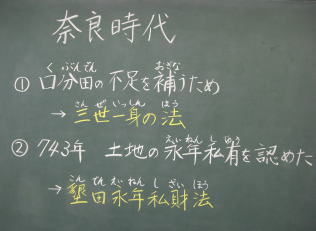 奈良時代
① 口分田の不足を補うため
→ 三世一身の法
② 743年 土地の永年私有を認めた
→ 墾田永年私財法